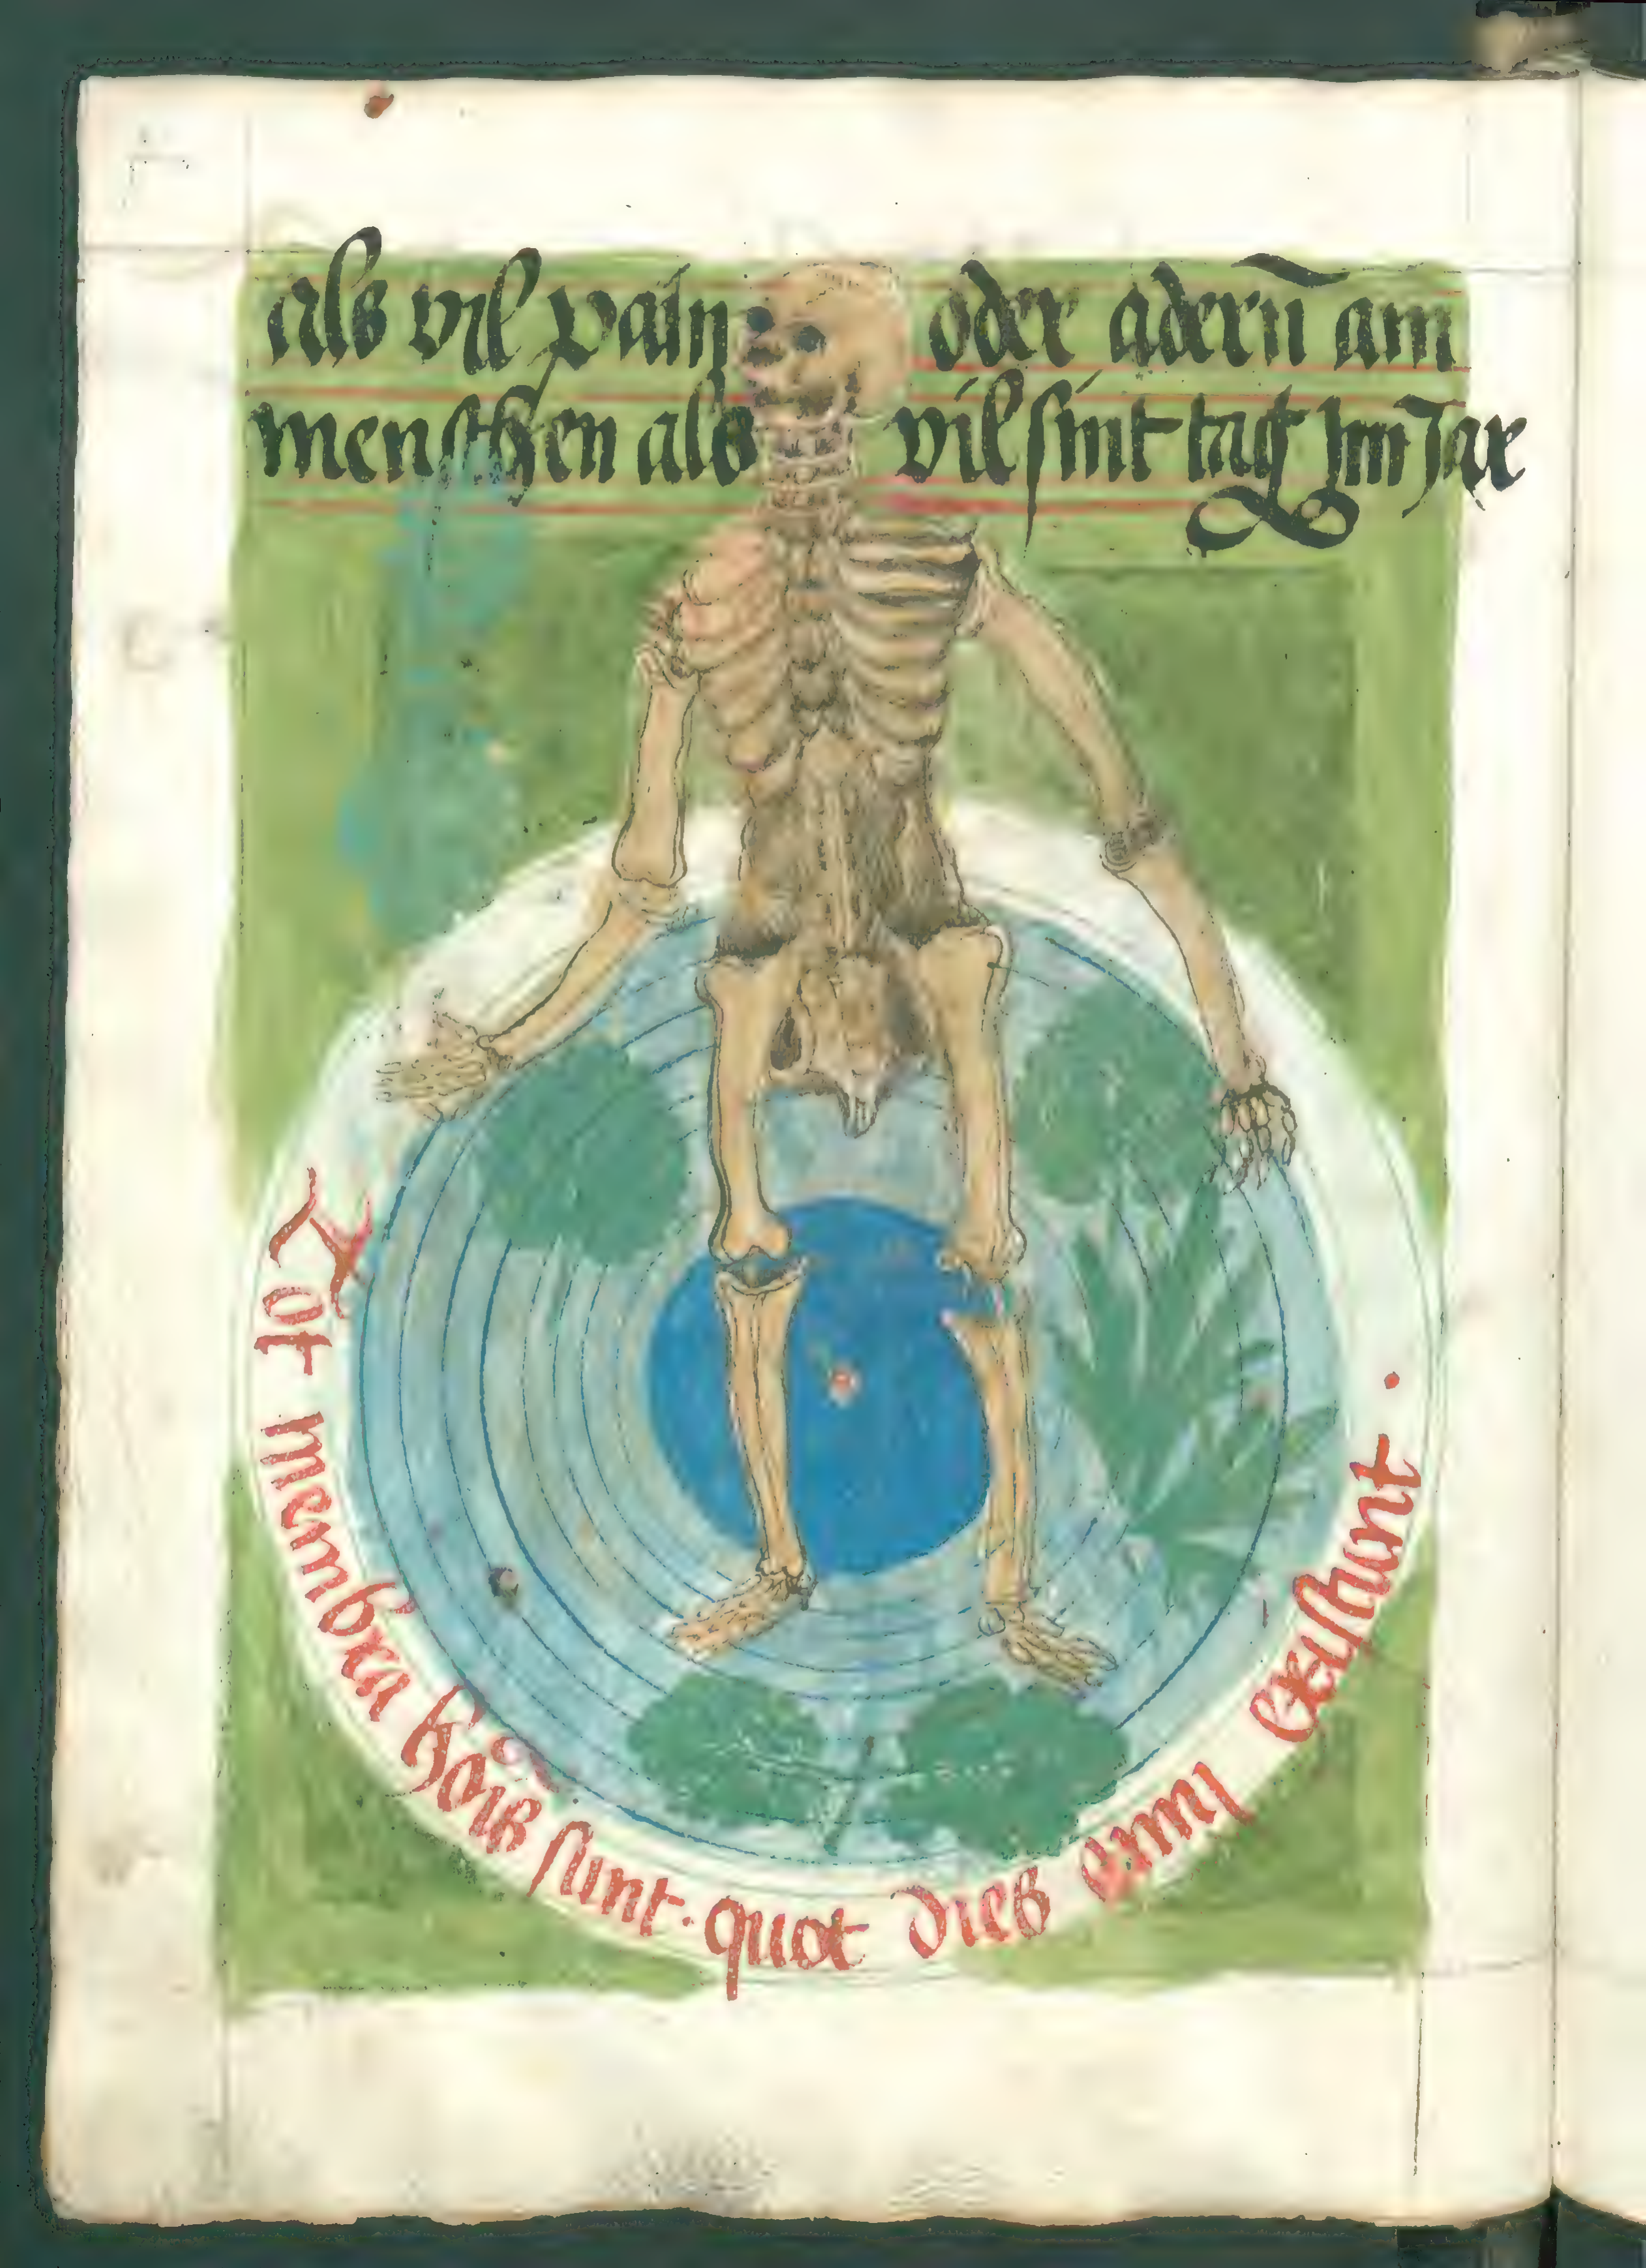 als vyl payn oder adern̄ am
menschen als vil sint tag Jm Jar
Tot membra hōīs sunt · quot dies anni existunt ·